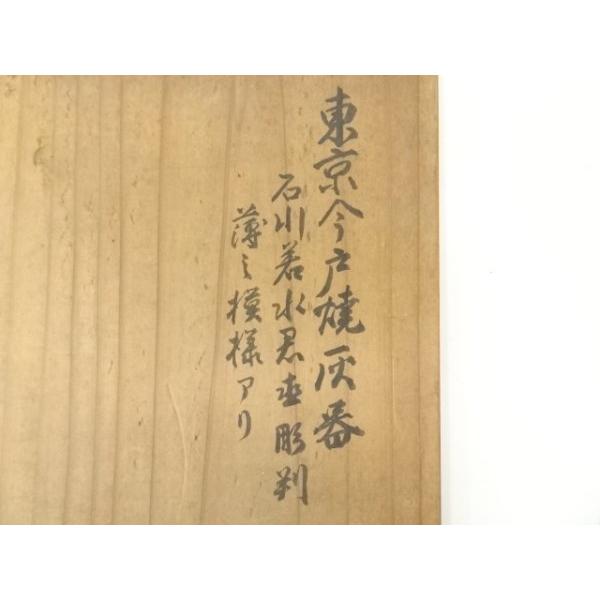 東京今戸燒灰器
石川若水君直彫判
薄ミ模様アリ